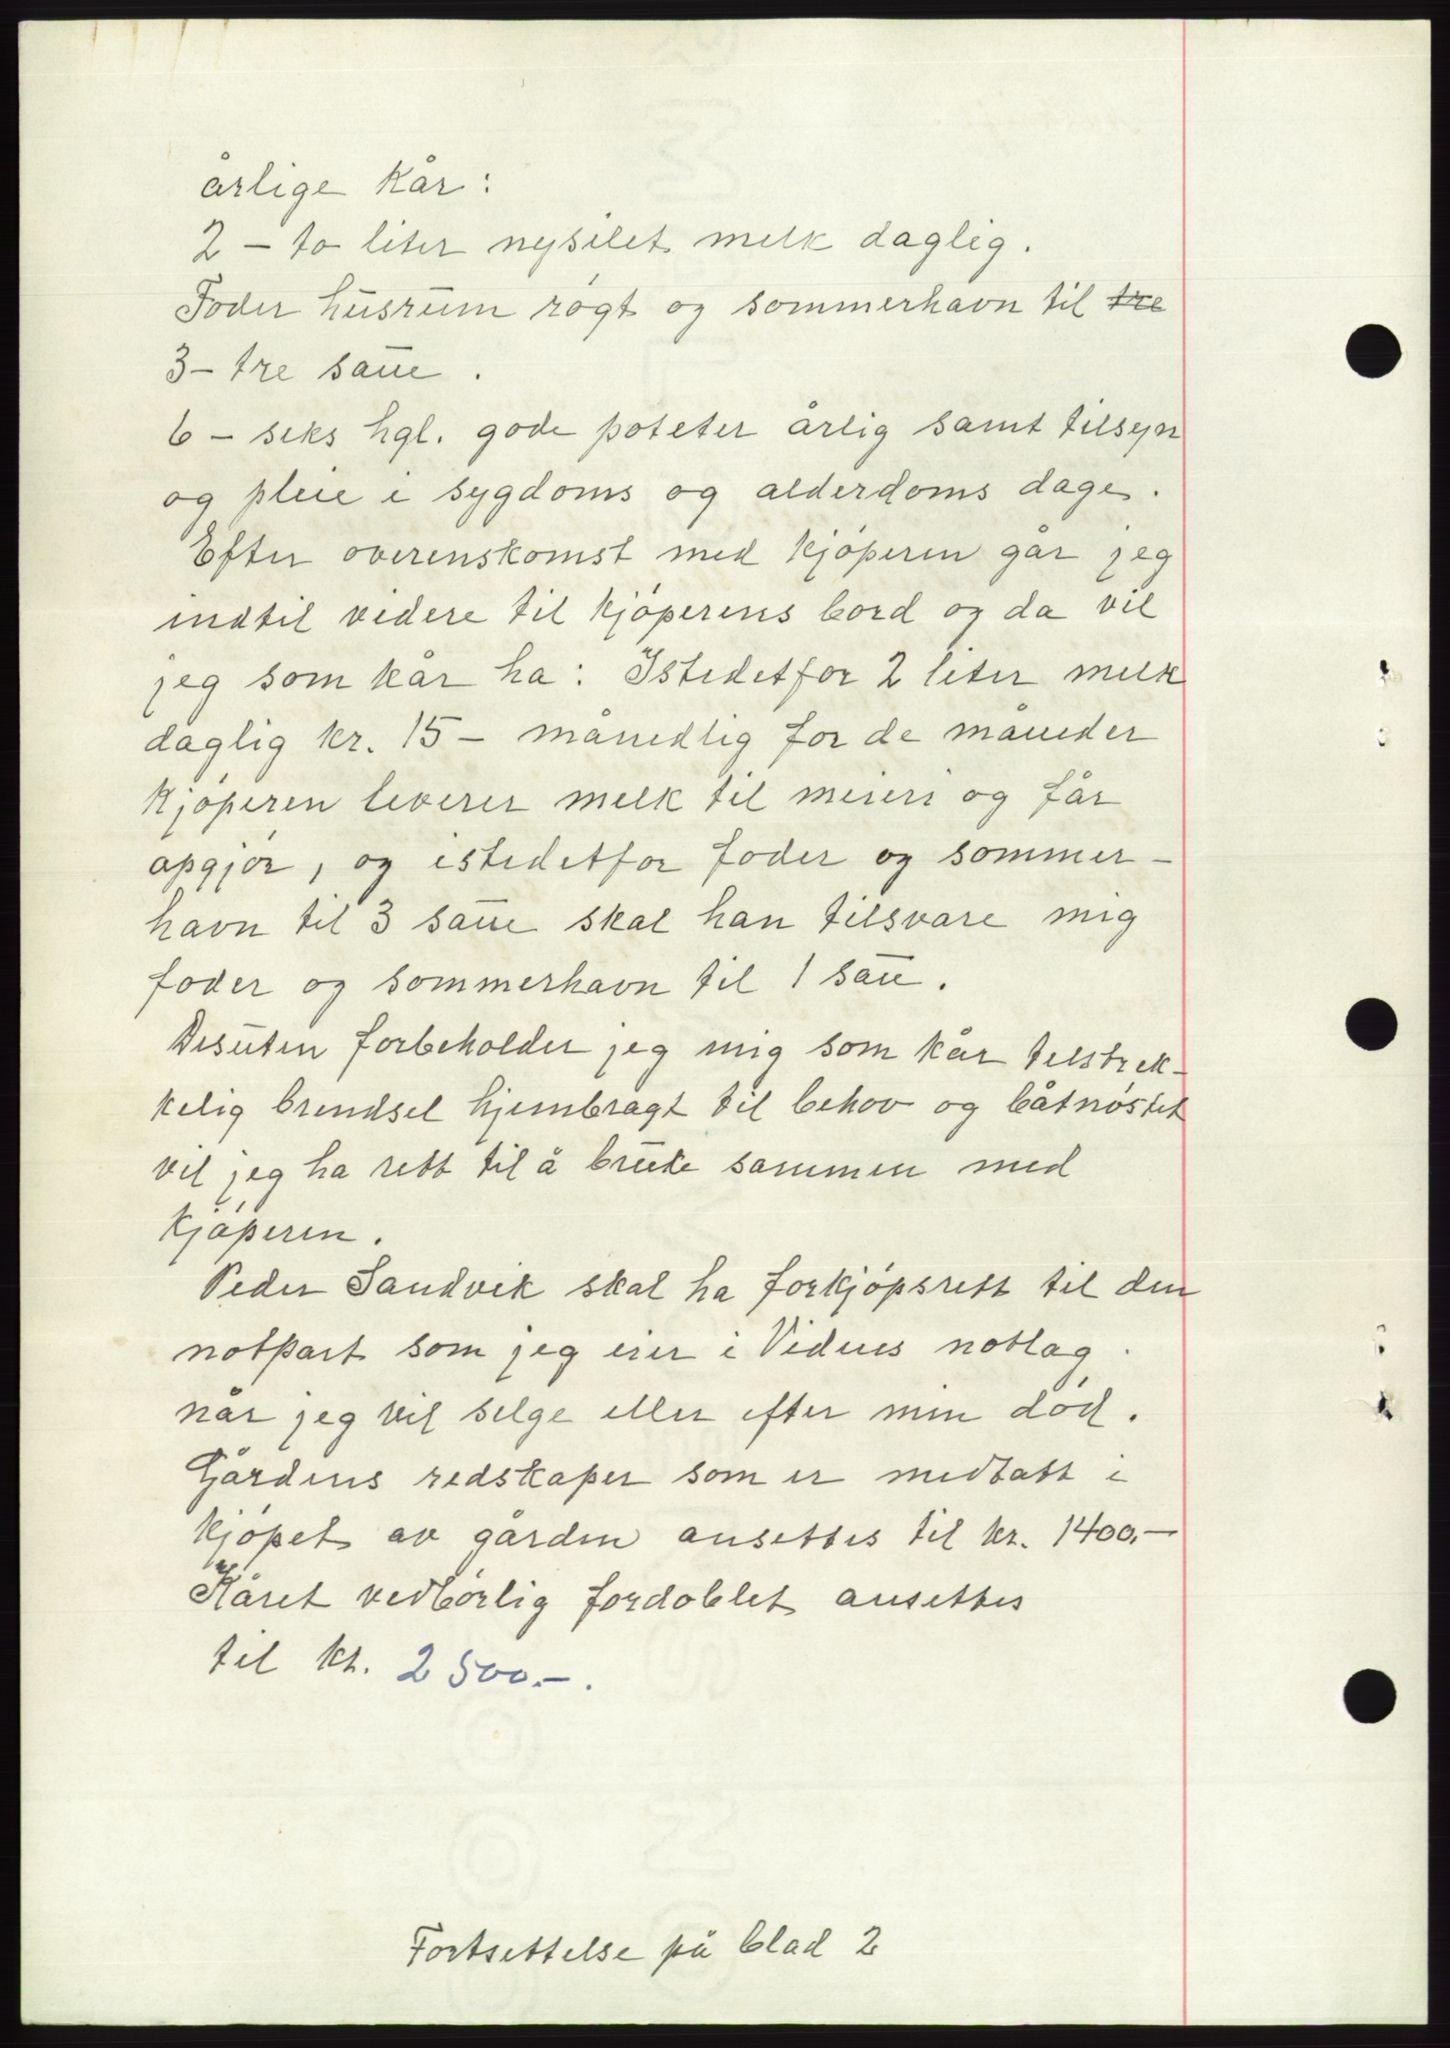 årlige kår:
2 – to liter nysilet melk daglig.
Foder husrum røgt og sommerhavn til tre
3 – tre saue.
6 – seks hgl. gode poteter årlig samt tilsyn
og pleie i sygdoms og alderdoms dage.
Efter overenskomst med kjøperen går jeg
indtil videre til kjøperens bord og da vil
jeg som kår ha: Istedetfor 2 liter melk
daglig kr. 15 – månedlig for de måneder
kjøperen leverer melk til meieri og får
opgjør, og istedetfor foder og sommer-
havn til 3 saue skal han tilsvare mig
foder og sommerhavn til 1 saue.
Desuten forbeholder jeg mig som kår tilstrek-
kelig brendsel hjembragt til behov og båtnøstet
vil jeg ha rett til å bruke sammen med
kjøperen.
Peder Sandvik skal ha forkjøpsrett til den
notpart som jeg eier i Vidnes notlag.
når jeg vil selge eller efter min død.
Gårdens redskaper som er medtatt i
kjøpet av gården ansettes til kr. 1400,–
Kåret vedbørlig fordoblet ansettes
til kr. 2500.–.
Fortsettelse på blad 2